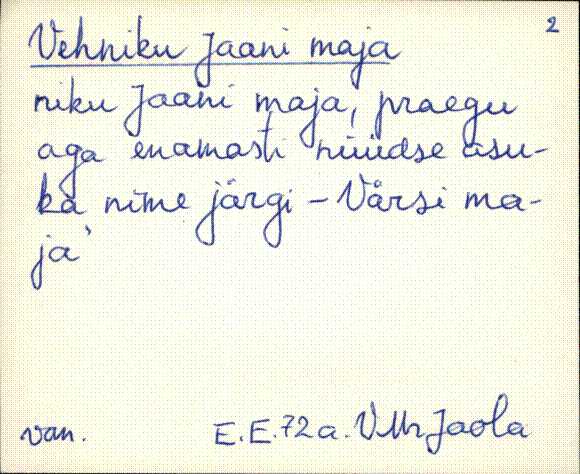 2
Vehniku Jaani maja
niku Jaani maja, praegu
aga enamasti nüüdse asu-
ka nime järgi – Värsi ma-
ja'
van. E.E. 72a. VMr Jaola